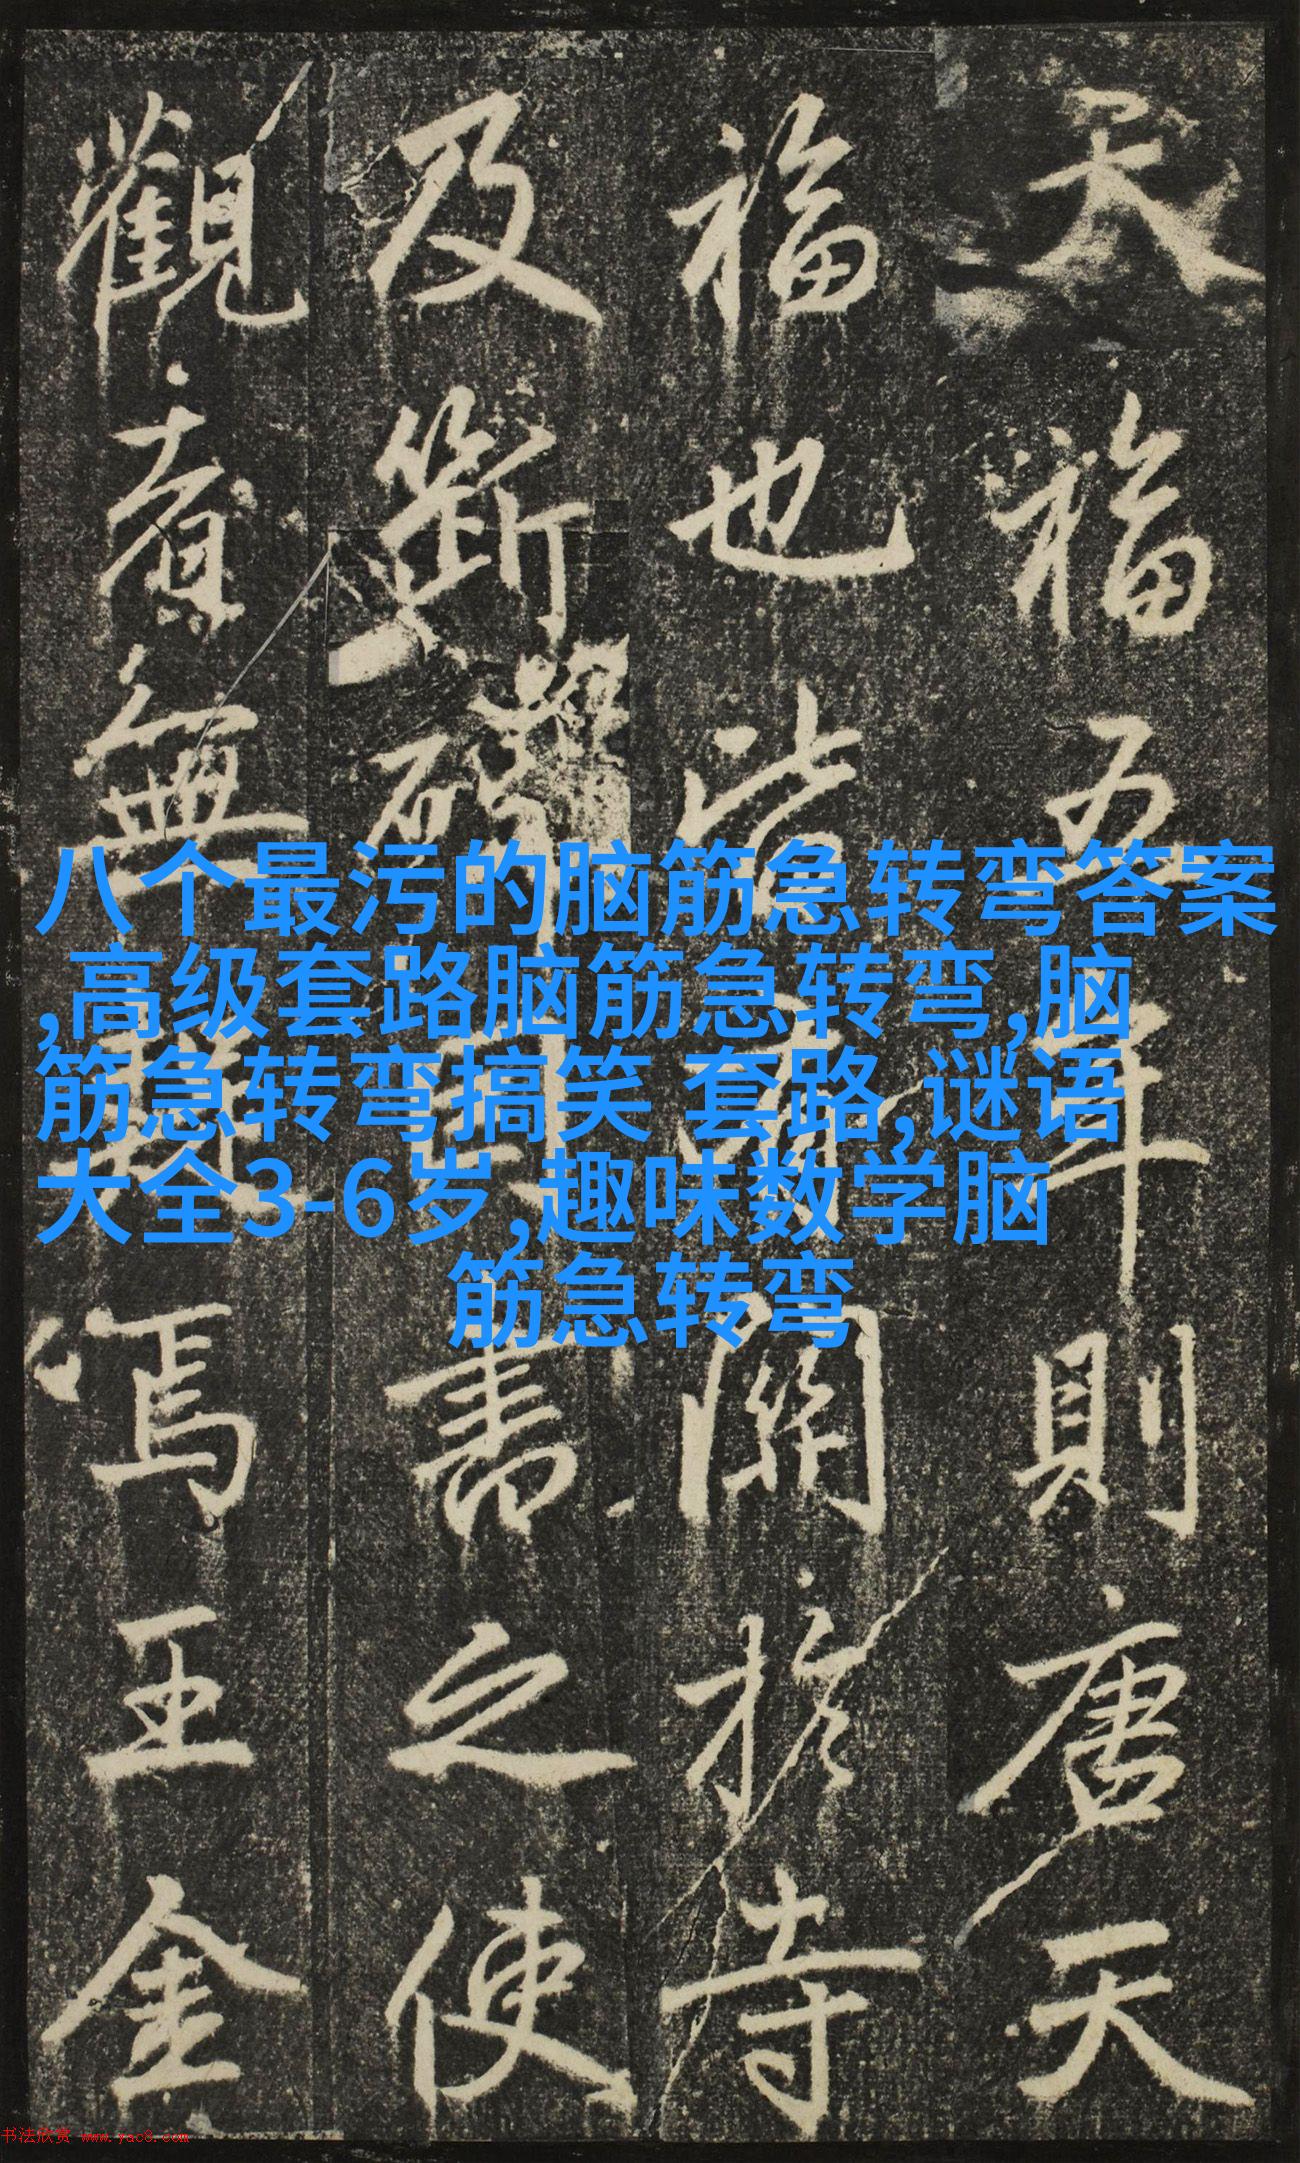 天福五年則唐天
福也皆
關於寺
及斷碑
書之使
觀者無
焉王金
八个最污的脑筋急转弯答案
,高级套路脑筋急转弯,脑
筋急转弯搞笑 套路,谜语
大全3-6岁,趣味数学脑
筋急转弯
书法欣赏 www.yac8.com